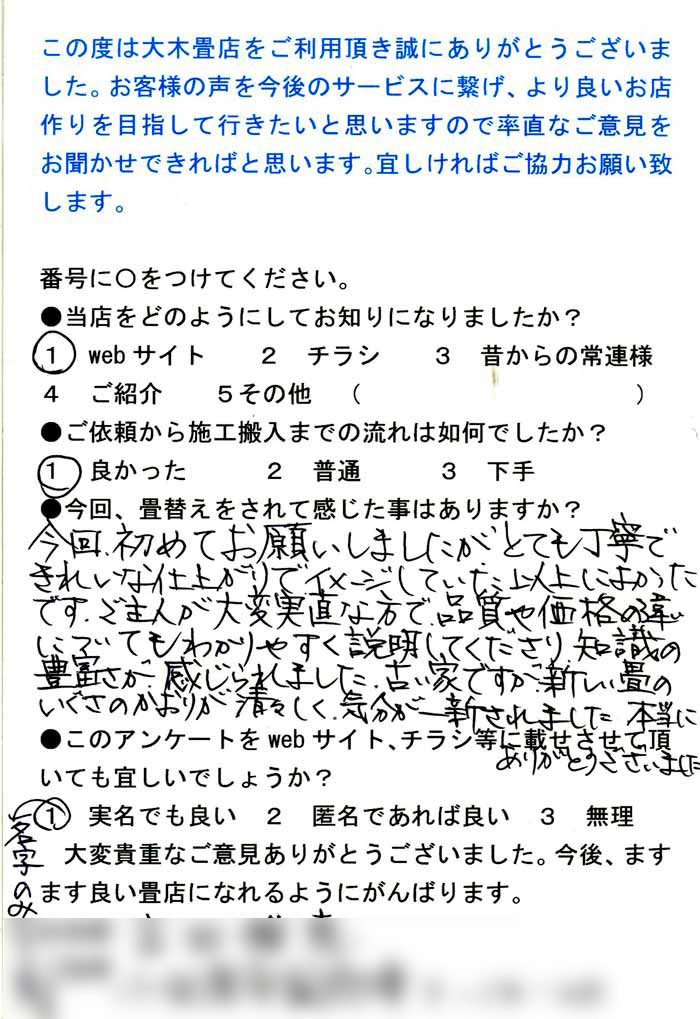 この度は大木畳店をご利用頂き誠にありがとうございま
した。お客様の声を今後のサービスに繋げ、より良いお店
作りを目指して行きたいと思いますので率直なご意見を
お聞かせできればと思います。宜しければご協力お願い致
します。
番号に〇をつけてください。
●当店をどのようにしてお知りになりましたか？
1 webサイト 2 チラシ 3 昔からの常連様
4 ご紹介 5その他 （ ）
●ご依頼から施工搬入までの流れは如何でしたか？
1 良かった 2 普通 3 下手
●今回、畳替えをされて感じた事はありますか？
今回、初めてお願いしましたがとても丁寧で
きれいな仕上がりでイメージしていた以上によかった
です。ご主人が大変実直な方で、品質や価格の違い
についてもわかりやすく説明してくださり知識の
豊富さが感じられました。古い家ですが、新しい畳の
いぐさのかおりが清々しく、気分が一新されました 本当に
ありがとうございました
●このアンケートをwebサイト、チラシ等に載せさせて頂
いても宜しいでしょうか？
1 実名でも良い 2 匿名であれば良い 3 無理
名字のみ
大変貴重なご意見ありがとうございました。今後、ます
ます良い畳店になれるようにがんばります。